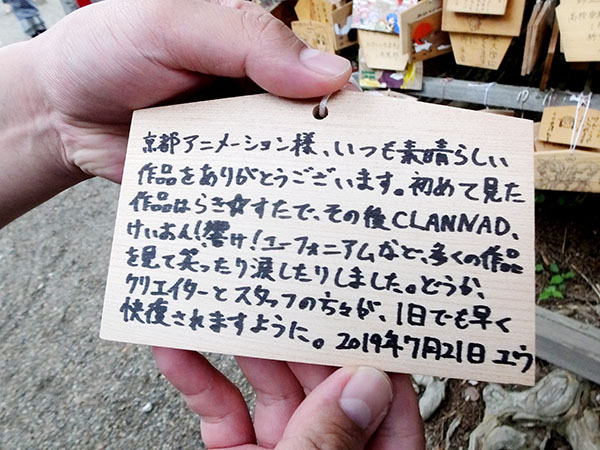 京都アニメーション様、いつも素晴らしい
作品をありがとうございます。初めて見た
作品はらき☆すたで、その後CLANNAD、
けいおん!、響け!ユーフォニアムなど、多くの作品
を見て笑ったり涙したりしました。どうか、
クリエイターとスタッフの方々が、1日でも早く
快復されますように。2019年7月21日 ユウ